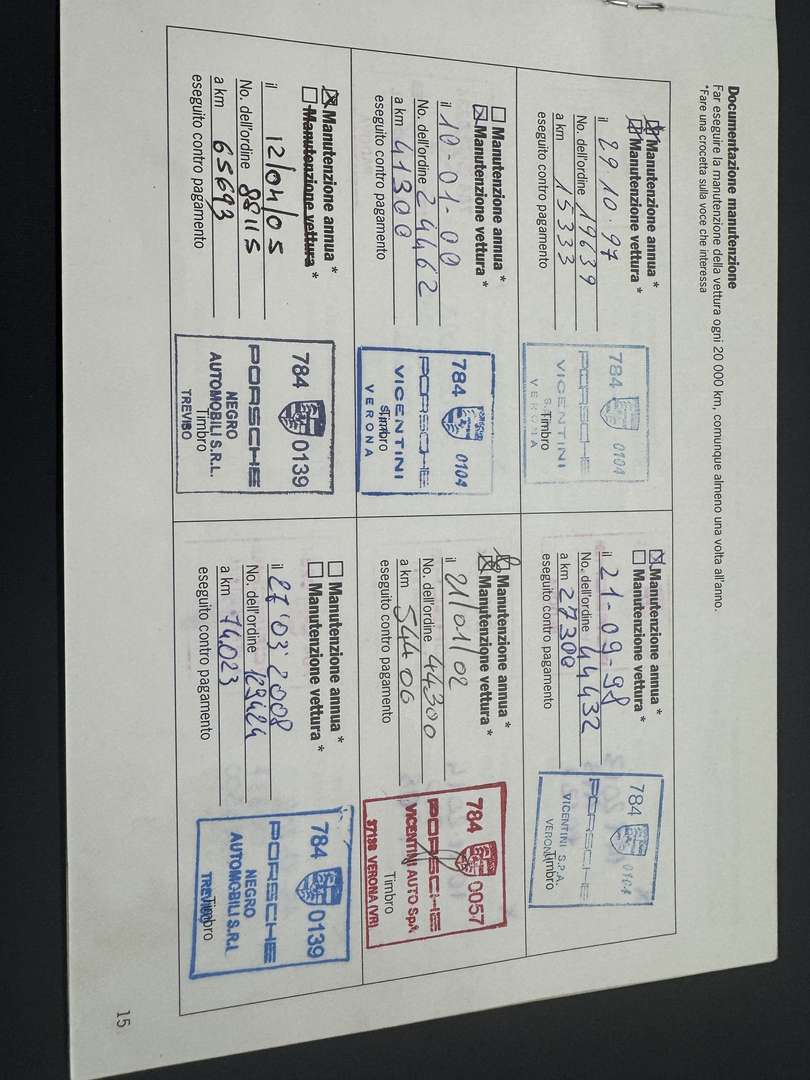 Documentazione manutenzione
Far eseguire la manutenzione della vettura ogni 20 000 km, comunque almeno una volta all'anno.
*Fare una crocetta sulla voce che interessa
Manutenzione annua *
Manutenzione vettura *
il 29.10.97
No. dell'ordine 19639
a km 15333
eseguito contro pagamento
784 0104
PORSCHE
VICENTINI
Timbro
VERONA
Manutenzione annua *
Manutenzione vettura *
il 21-09-98
No. dell'ordine 44432
a km 27300
eseguito contro pagamento
784 0104
PORSCHE
VICENTINI S.P.A.
VERONA
Timbro
Manutenzione annua *
Manutenzione vettura *
il 10-01-00
No. dell'ordine 24462
a km 41300
eseguito contro pagamento
784 0104
PORSCHE
VICENTINI
Timbro
VERONA
Manutenzione annua *
Manutenzione vettura *
il 21/01/02
No. dell'ordine 44300
a km 54406
eseguito contro pagamento
784 0057
PORSCHE
VICENTINI AUTO SpA
Timbro
37138 VERONA (VR)
Manutenzione annua *
Manutenzione vettura *
il 12/04/05
No. dell'ordine 88115
a km 65693
eseguito contro pagamento
784 0139
PORSCHE
NEGRO
AUTOMOBILI S.R.L.
Timbro
TREVISO
Manutenzione annua *
Manutenzione vettura *
il 27.03.2008
No. dell'ordine 129424
a km 74023
eseguito contro pagamento
784 0139
PORSCHE
NEGRO
AUTOMOBILI S.R.L
TREVISO
Timbro
15